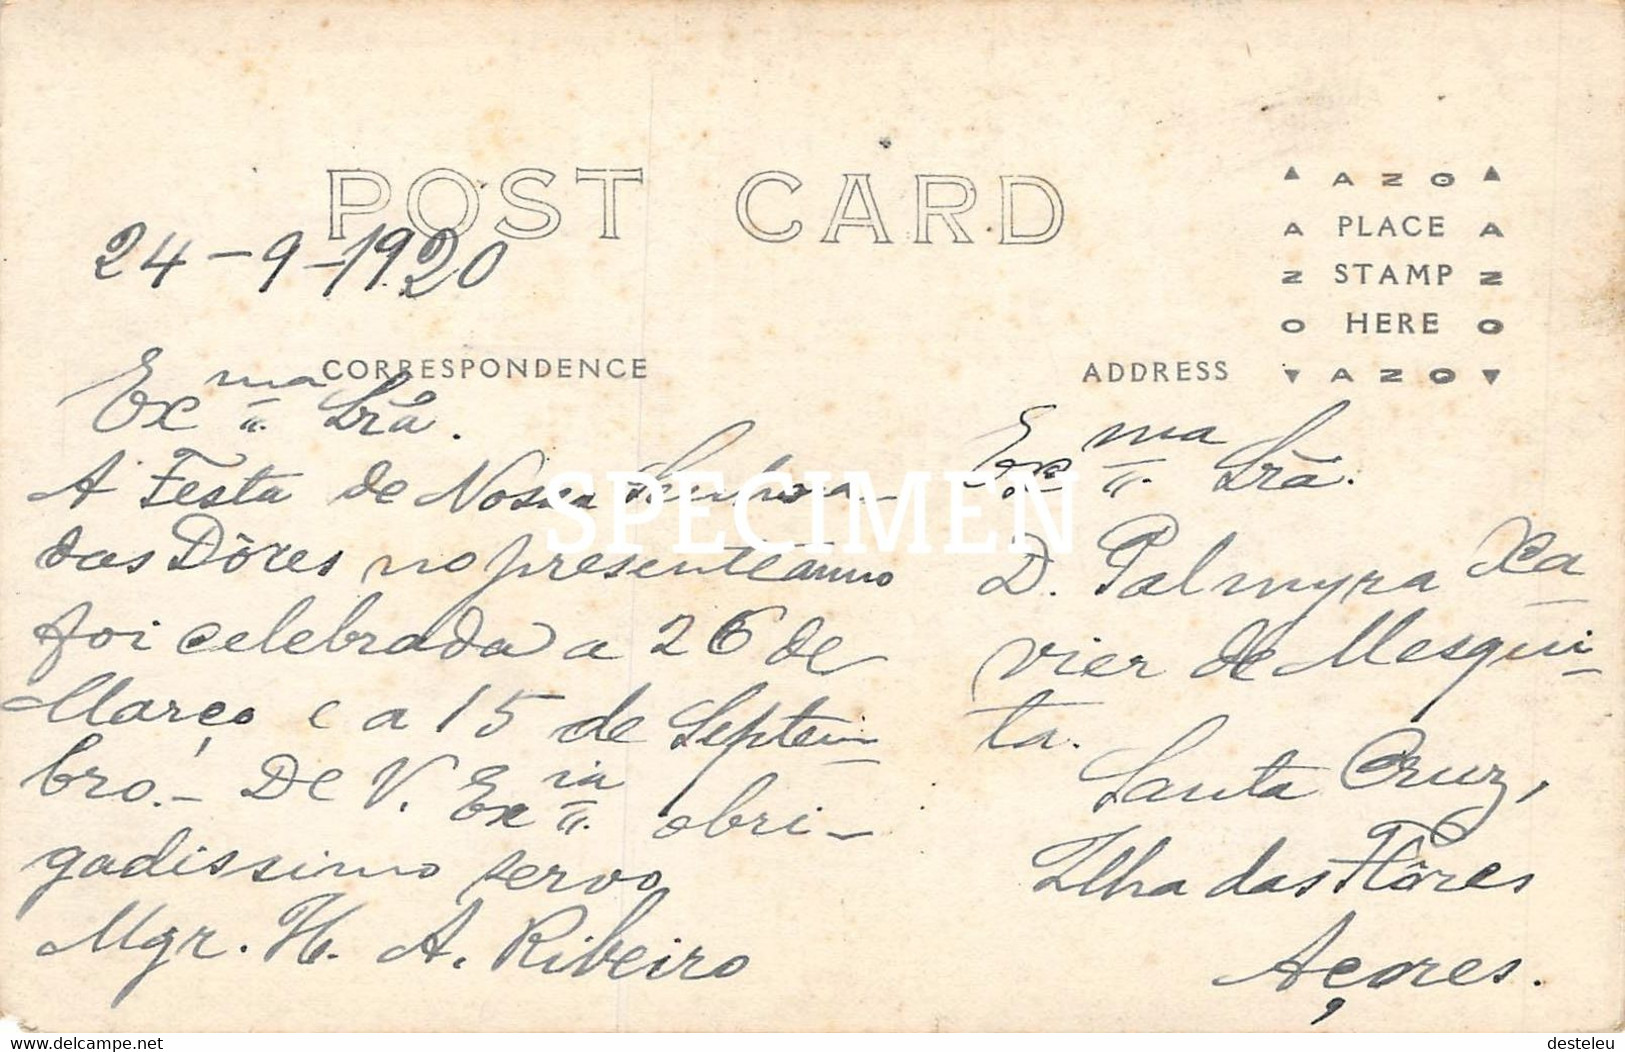 POST CARD
24-9-1920
CORRESPONDENCE
Ex^ma Srã.
A Festa de Nossa Senhora
das Dôres no presente anno
foi celebrada a 26 de
Março e a 15 de Septem-
bro. - De V. Ex^ia obri-
gadissimo servo
Mgr. H. A. Ribeiro
AZO
A PLACE A
Z STAMP Z
O HERE O
AZO
ADDRESS
Ex^ma Srã.
D. Palmyra Xa-
vier de Mesqui-
ta.
Santa Cruz,
Ilha das Flôres
Açores.
SPECIMEN
delcampe.net
desteleu